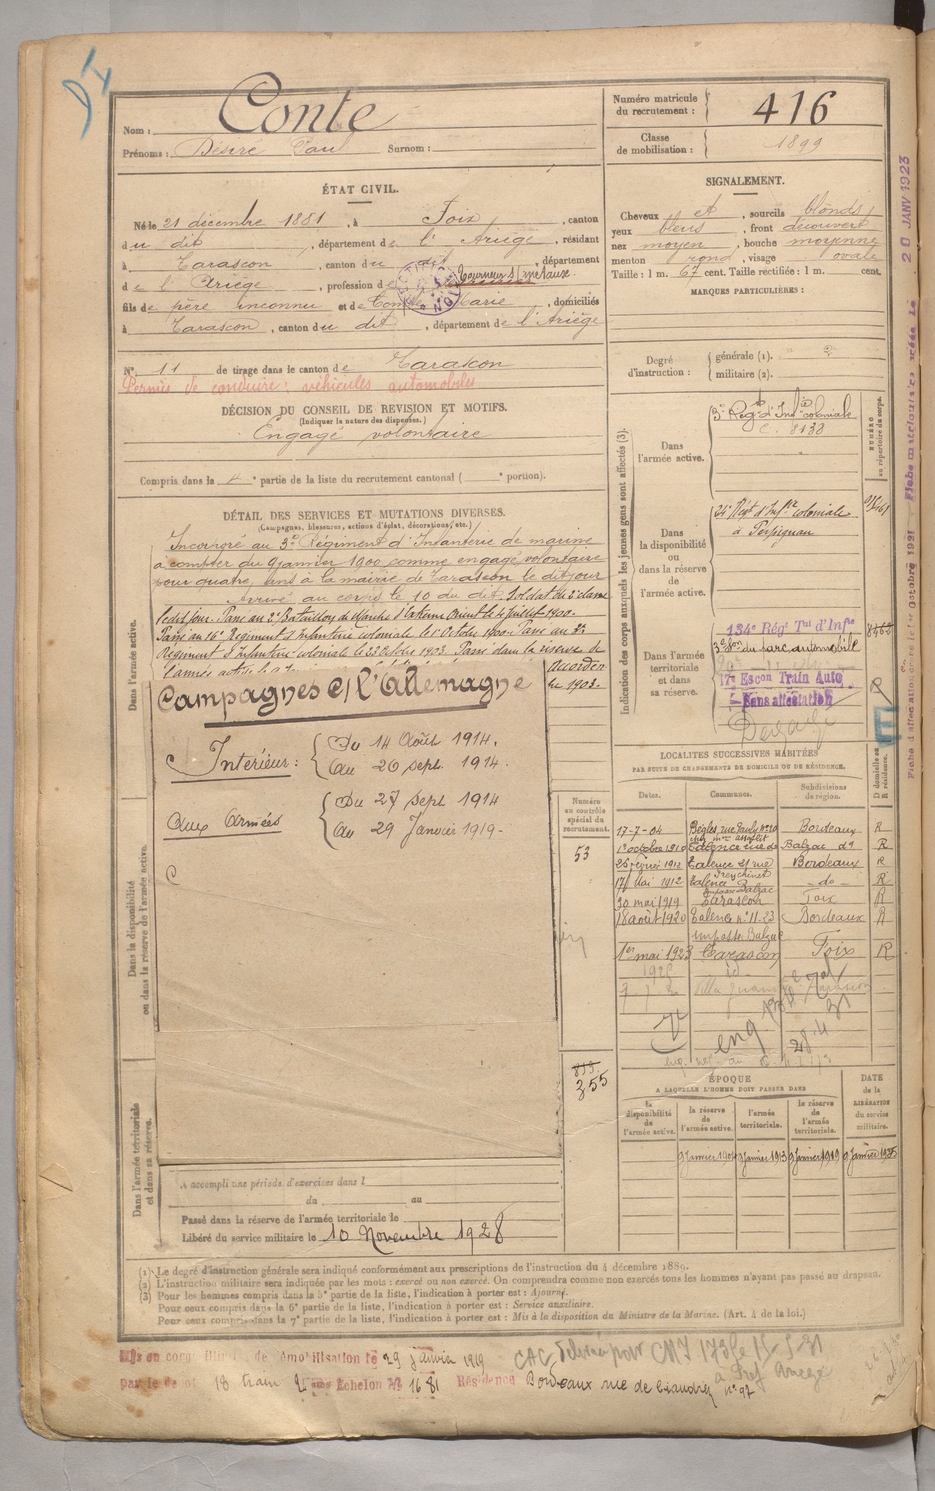 Nom : Conte
Prénoms : Désiré Paul Surnom :
Numéro matricule du recrutement : 416
Classe de mobilisation : 1899
ÉTAT CIVIL.
Né le 21 décembre 1881, à Foix, canton
du dit, département de l'Ariège, résidant
à Tarascon, canton du dit, département
de l'Ariège, profession de Tourneur s/métaux
fils de père inconnu et de Marie, domiciliés
à Tarascon, canton du dit, département de l'Ariège
N° 11 de tirage dans le canton de Tarascon
Permis de conduire : véhicules automobiles
DÉCISION DU CONSEIL DE REVISION ET MOTIFS.
(Indiquer la nature des dispenses.)
Engagé volontaire
Compris dans la partie de la liste du recrutement cantonal ( portion).
SIGNALEMENT.
Cheveux et, sourcils blonds,
yeux bleus, front découvert
nez moyen, bouche moyenne
menton rond, visage ovale
Taille : 1 m. 67 cent. Taille rectifiée : 1 m. cent.
MARQUES PARTICULIÈRES :
Degré d'instruction :
générale (1).
militaire (2).
DÉTAIL DES SERVICES ET MUTATIONS DIVERSES.
(Campagnes, blessures, actions d'éclat, décorations, etc.)
Incorporé au 3e Régiment d'Infanterie de marine
à compter du 9 janvier 1900 comme engagé volontaire
pour quatre ans à la mairie de Tarascon le dit jour
Arrivé au corps le 10 du dit. Soldat de 2e classe
le dit jour. Passé au 2e Bataillon de Marche d'Extrême Orient le 4 juillet 1900.
Passé au 16e Régiment d'Infanterie coloniale le 1er Octobre 1900. Passé au
Régiment d'Infanterie coloniale le 23 Octobre 1903. Passé dans la réserve de
l'armée active le
1903.
Campagnes c/ l'Allemagne
Intérieur : { Du 14 Août 1914.
au 26 sept. 1914.
aux armées { Du 27 Sept 1914
au 29 Janvier 1919.
Dans l'armée active.
Dans la disponibilité ou dans la réserve de l'armée active.
Dans l'armée territoriale et dans sa réserve.
Numéro au contrôle spécial du recrutement.
53
355
A accompli une période d'exercices dans l
du au
Passé dans la réserve de l'armée territoriale le
Libéré du service militaire le 10 Novembre 1928
Indication des corps auxquels les jeunes gens sont affectés (3).
NUMÉRO au répertoire du corps.
Dans l'armée active.
3e Régt d'Infie coloniale
C. 8138
Dans la disponibilité ou dans la réserve de l'armée active.
24e Régt d'Infre coloniale
à Perpignan
Dans l'armée territoriale et dans sa réserve.
134e Régt Tal d'Infie
3e Son du parc automobile
17e Escon Train Auto
Sans affectation
LOCALITÉS SUCCESSIVES HABITÉES
PAR SUITE DE CHANGEMENTS DE DOMICILE OU DE RÉSIDENCE.
Dates. Communes. Subdivisions de région. D domicile ou R résidence.
17-7-04 Bègles, rue Bordeaux R
1er octobre 1910 Talence rue de Balzac do R
26 février 1912 Talence 21 rue Freycinet Bordeaux R
17 Mai 1912 Talence impasse Balzac do R
30 mai 1919 Tarascon Foix R
18 août 1920 Talence n° 11-23 impasse Balzac Bordeaux R
1er mai 1923 Tarascon Foix R
ÉPOQUE
A LAQUELLE L'HOMME DOIT PASSER DANS
la disponibilité de l'armée active. la réserve de l'armée active. l'armée territoriale. la réserve de l'armée territoriale.
DATE de la LIBÉRATION du service militaire.
9 Janvier 1913 9 Janvier 1919
(1) Le degré d'instruction générale sera indiqué conformément aux prescriptions de l'instruction du 4 décembre 1889.
(2) L'instruction militaire sera indiquée par les mots : exercé ou non exercé. On comprendra comme non exercés tous les hommes n'ayant pas passé au drapeau.
(3) Pour les hommes compris dans la 5e partie de la liste, l'indication à porter est : Ajourné.
Pour ceux compris dans la 6e partie de la liste, l'indication à porter est : Service auxiliaire.
Pour ceux compris dans la 7e partie de la liste, l'indication à porter est : Mis à la disposition du Ministre de la Marine. (Art. 4 de la loi.)
de démobilisation le 29 janvier 1919
par le dépôt 18 train Échelon N° 1681 Résidence Bordeaux rue de n° 97
20 JANV 1923